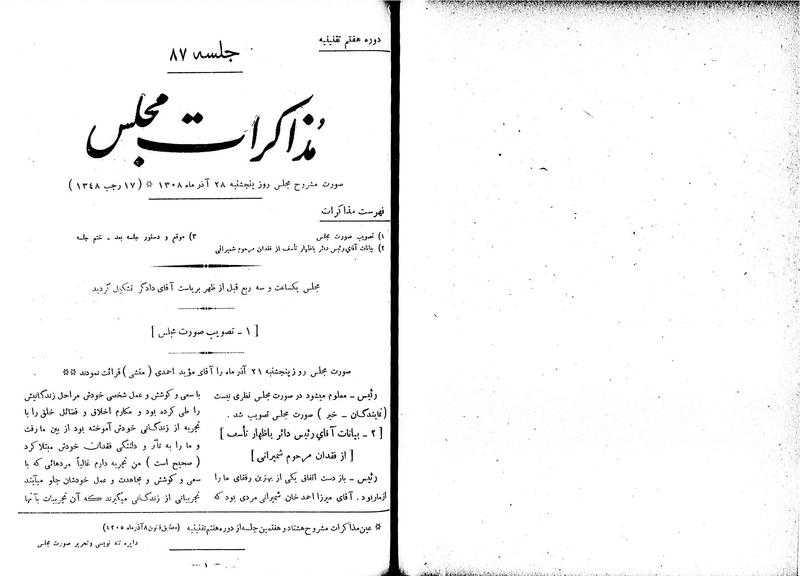 دوره هفتم تقنینیه
جلسه ۸۷
مذاکرات مجلس
صورت مشروح مجلس روز پنجشنبه ۲۸ آذر ماه ۱۳۰۸ * (۱۷ رجب ۱۳۴۸)
فهرست مذاکرات
۱) تصویب صورت مجلس
۲) بیانات آقای رئیس دائر باظهار تأسف از فقدان مرحوم شمیرانی
۳) موقع و دستور جلسه بعد ـ ختم جلسه
مجلس یکساعت و سه ربع قبل از ظهر بریاست آقای دادگر تشکیل گردید
[ ۱ ـ تصویب صورت مجلس ]
صورت مجلس روز پنجشنبه ۲۱ آذر ماه را آقای مؤید احمدی (منشی) قرائت نمودند **
رئیس ـ معلوم میشود در صورت مجلس نظری نیست
(نمایندگان ـ خیر) صورت مجلس تصویب شد .
[ ۲ ـ بیانات آقای رئیس دائر باظهار تأسف ]
[ از فقدان مرحوم شمیرانی ]
رئیس ـ باز دست اتفاق یکی از بهترین رفقای ما را
ازما ربود . آقای میرزا احمد خان شمیرانی مردی بود که
با سعی و کوشش و عمل شخصی خودش مراحل زندگانیش
را طی کرده بود و مکارم اخلاق و فضائل خلق را با
تجربه از زندگانی خودش آموخته بود از بین ما رفت
و ما را به تأثر و دلتنگی فقدان خودش مبتلا کرد
(صحیح است) من تجربه دارم غالباً مردهائی که با
سعی و کوشش و مجاهدت و عمل خودشان جلو میآیند
تجربیاتی از زندگانی میگیرند که آن تجربیات بآنها
* عین مذاکرات مشروح هشتاد و هفتمین جلسه از دوره هفتم تقنینیه (مطابق قانون ۸ آذر ماه ۱۳۰۵)
دایره تند نویسی و تحریر صورت مجلس
ـ ۱ ـ